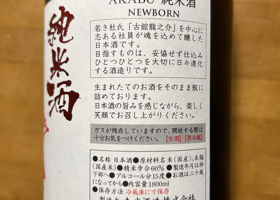 AKABU 純米酒
NEWBORN
純米酒
若き杜氏「古舘龍之介」を中心に
志ある社員が魂を込めて醸した
日本酒です。
目指すものは、妥協せず仕込み
ひとつひとつを大切に日々進化
する酒造りです。
生まれたてのお酒をそのまま瓶に
詰めております。
日本酒の旨みを感じながら、楽しく
笑顔でお召し上がりください。
ガスが残存していますので、開栓する際は
十分お気をつけください。【生酒】【要冷蔵】
●名称 日本酒●原材料名 米(国産)、米麹
(国産米)●精米歩合60%●製造年月は枠
下部へ●アルコール分15度●お酒は二十歳
になってから●内容量1800ml
●保存方法 冷蔵庫にて保存